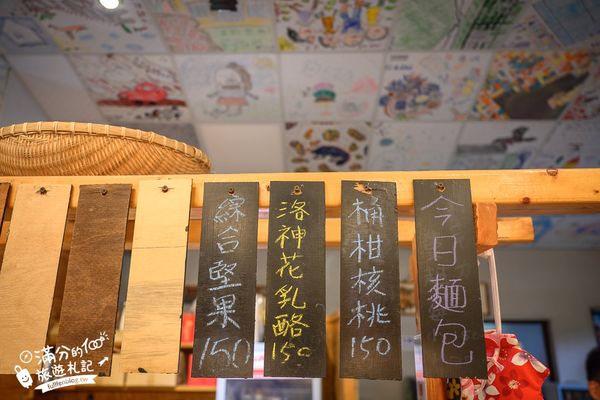 今日麵包
桶柑核桃
150
洛神花乳酪
150
綜合堅果
150
滿分的
旅遊札記